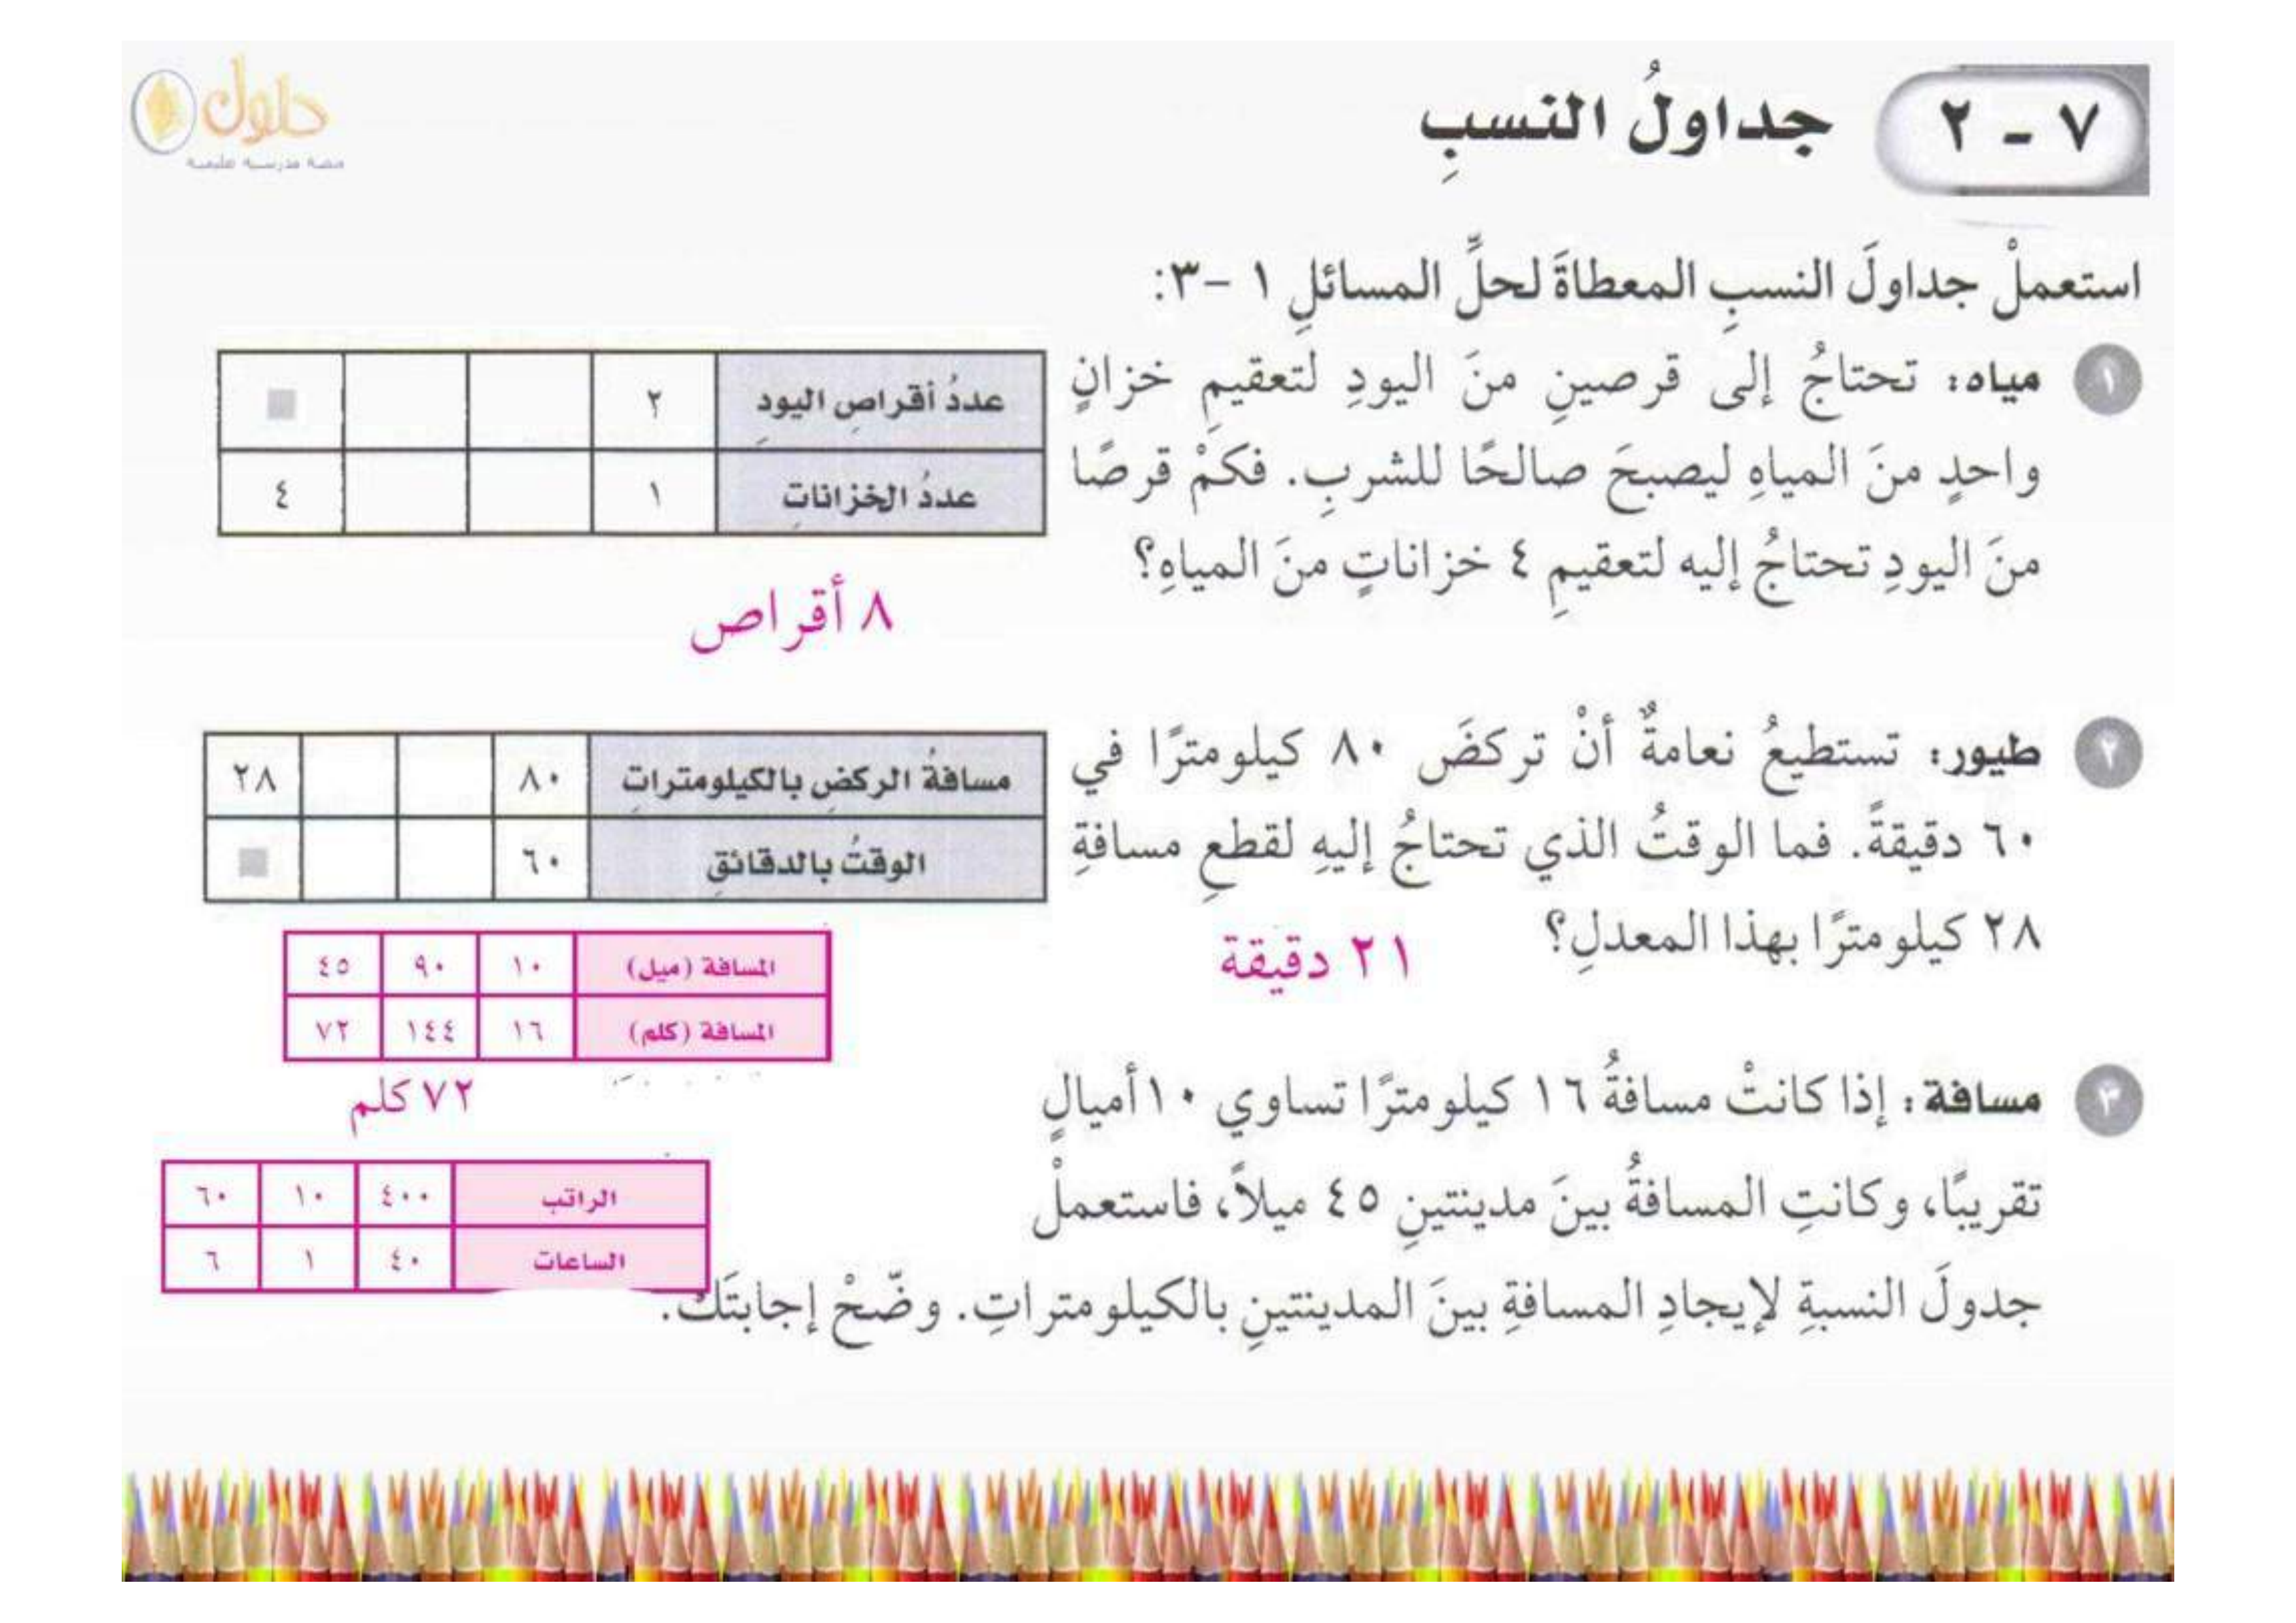 حلول
٧ - ٢ جداولُ النسبِ
استعملْ جداولَ النسبِ المعطاةَ لحلِّ المسائلِ ١ -٣:
١ مياه: تحتاجُ إلى قرصينِ منَ اليودِ لتعقيمِ خزانٍ
واحدٍ منَ المياهِ ليصبحَ صالحًا للشربِ. فكمْ قرصًا
منَ اليودِ تحتاجُ إليه لتعقيمِ ٤ خزاناتٍ منَ المياهِ؟
عددُ أقراصِ اليودِ ٢
عددُ الخزاناتِ ١ ٤
٨ أقراص
٢ طيور: تستطيعُ نعامةٌ أنْ تركضَ ٨٠ كيلومترًا في
٦٠ دقيقةً. فما الوقتُ الذي تحتاجُ إليهِ لقطعِ مسافةِ
٢٨ كيلومترًا بهذا المعدلِ؟
مسافةُ الركضِ بالكيلومتراتِ ٨٠ ٢٨
الوقتُ بالدقائقِ ٦٠
٢١ دقيقة
المسافة (ميل) ١٠ ٩٠ ٤٥
المسافة (كلم) ١٦ ١٤٤ ٧٢
٧٢ كلم
٣ مسافة: إذا كانتْ مسافةُ ١٦ كيلومترًا تساوي ١٠ أميالٍ
تقريبًا، وكانتِ المسافةُ بينَ مدينتينِ ٤٥ ميلاً، فاستعملْ
جدولَ النسبةِ لإيجادِ المسافةِ بينَ المدينتينِ بالكيلومتراتِ. وضّحْ إجابتَكَ.
الراتب ٤٠٠ ١٠ ٦٠
الساعات ٤٠ ١ ٦